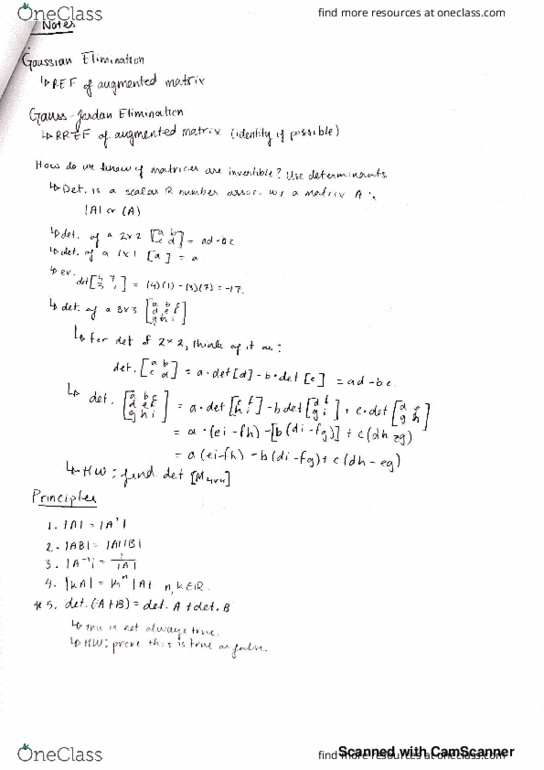 OneClass
find more resources at oneclass.com
Notes
Gaussian Elimination
↳ REF of augmented matrix
Gauss-Jordan Elimination
↳ RREF of augmented matrix (identity if possible)
How do we know if matrices are invertible? Use determinants.
↳ Det. is a scalar R number assoc. w/ a matrix A
|A| or (A)
↳ det. of a 2x2 [a b c d] = ad - bc
↳ det. of a 1x1 [a] = a
↳ ex. det [4 7 3 1] = (4)(1) - (3)(7) = -17.
↳ det. of a 3x3 [a b c d e f g h i]
↳ For det of 2x2, think of it as:
det. [a b c d] = a · det [d] - b · det [c] = ad - bc.
↳ det. [a b c d e f g h i] = a · det [e f h i] - b det [d f g i] + c · det [d e g h]
= a · (ei - fh) - [b (di - fg)] + c (dh eg)
= a (ei - fh) - b (di - fg) + c (dh - eg)
↳ HW: find det [M4x4]
Principles
1. |A| = |Aᵀ|
2. |AB| = |A||B|
3. |A⁻¹| = 1/|A|
4. |kA| = kⁿ |A| n, k ∈ R.
* 5. det. (A+B) = det. A + det. B
↳ this is not always true.
↳ HW: prove this is true or false.
Scanned with CamScanner
OneClass
find more resources at oneclass.com